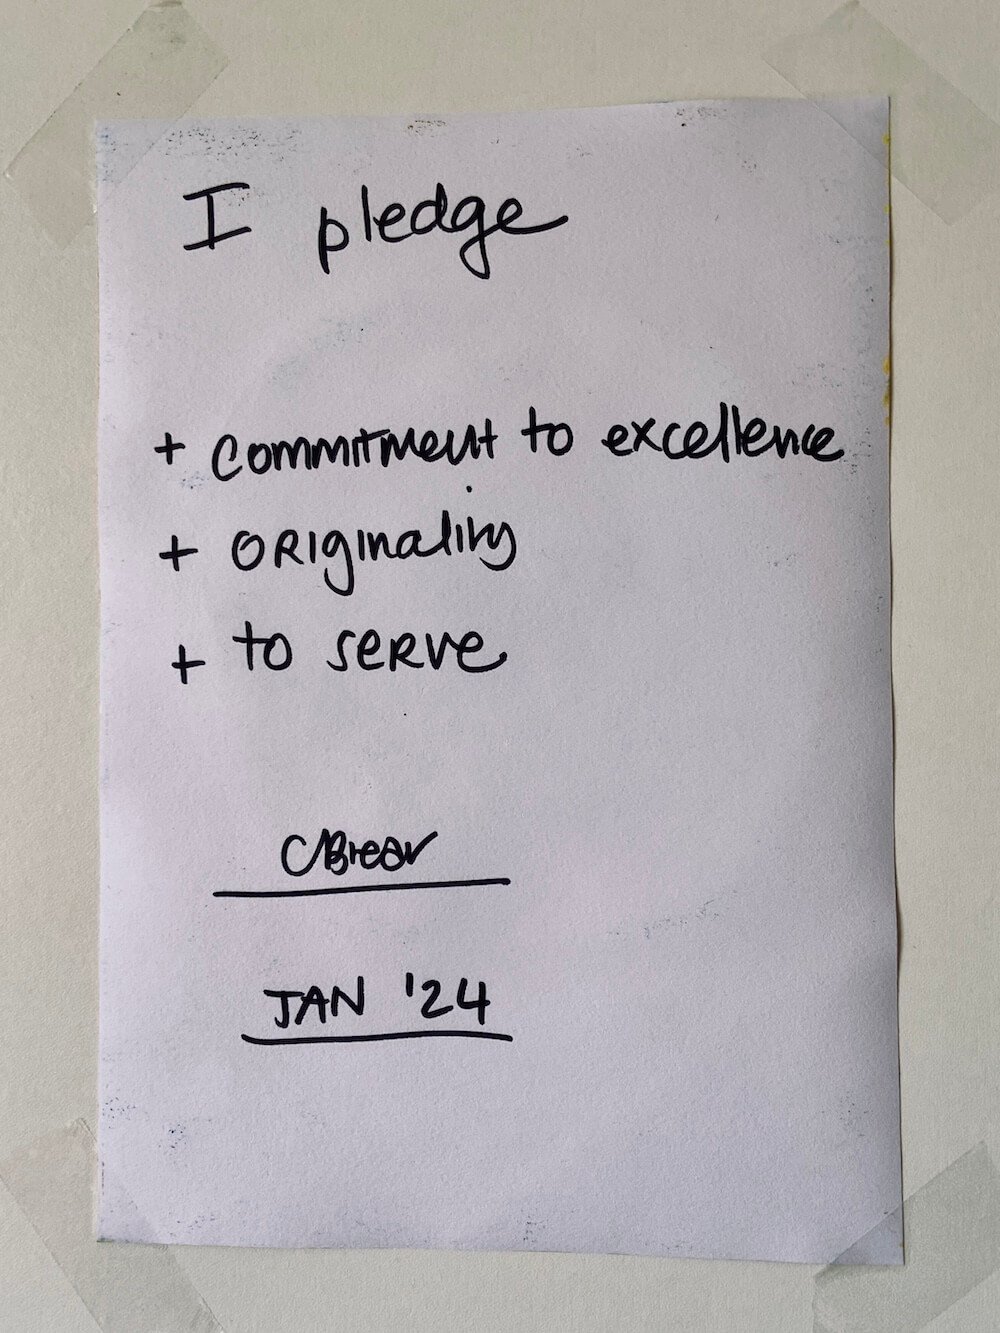 I pledge
+ commitment to excellence
+ originality
+ to serve
CBrear
JAN '24